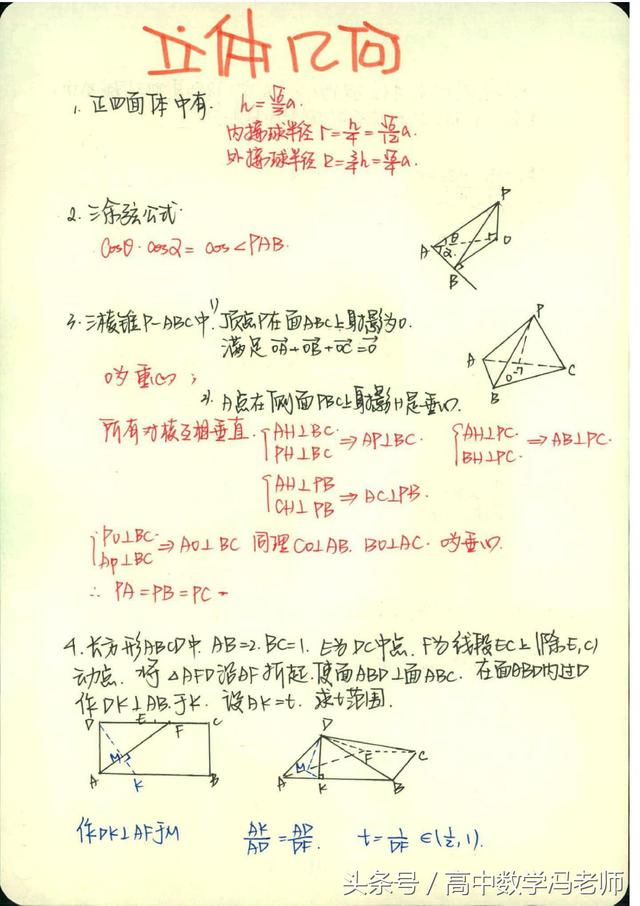 立体几何
1. 正四面体中有. h=√6/3 a.
内接球半径 r=h/4=√6/12 a.
外接球半径 R=3/4 h=√6/4 a.
2. 三余弦公式.
cosθ·cosα=cos∠PAB.
P
A θ O
α
B
3. 三棱锥P-ABC中. 1) 顶点P在面ABC上射影为O.
满足 OA+OB+OC=O
O为重心;
2). A点在侧面PBC上射影H是垂心.
P
A C
O
B
所有对棱互相垂直. {AH⊥BC. PH⊥BC ⇒ AP⊥BC. {AH⊥PC. BH⊥PC. ⇒ AB⊥PC.
{AH⊥PB CH⊥PB ⇒ AC⊥PB.
{PO⊥BC AP⊥BC ⇒ AO⊥BC 同理 CO⊥AB. BO⊥AC. O为垂心.
∴ PA=PB=PC
4. 长方形ABCD中. AB=2. BC=1. E为DC中点. F为线段EC上(除E,C)
动点. 将△AFD沿AF折起. 使面ABD⊥面ABC. 在面ABD内过D
作DK⊥AB.于K. 设AK=t. 求t范围.
D E F C
M
A K B
D
F C
M
A K B
作DK⊥AF于M AK/AD=AD/DF. t=1/DF ∈(1/2,1).
头条号 / 高中数学冯老师